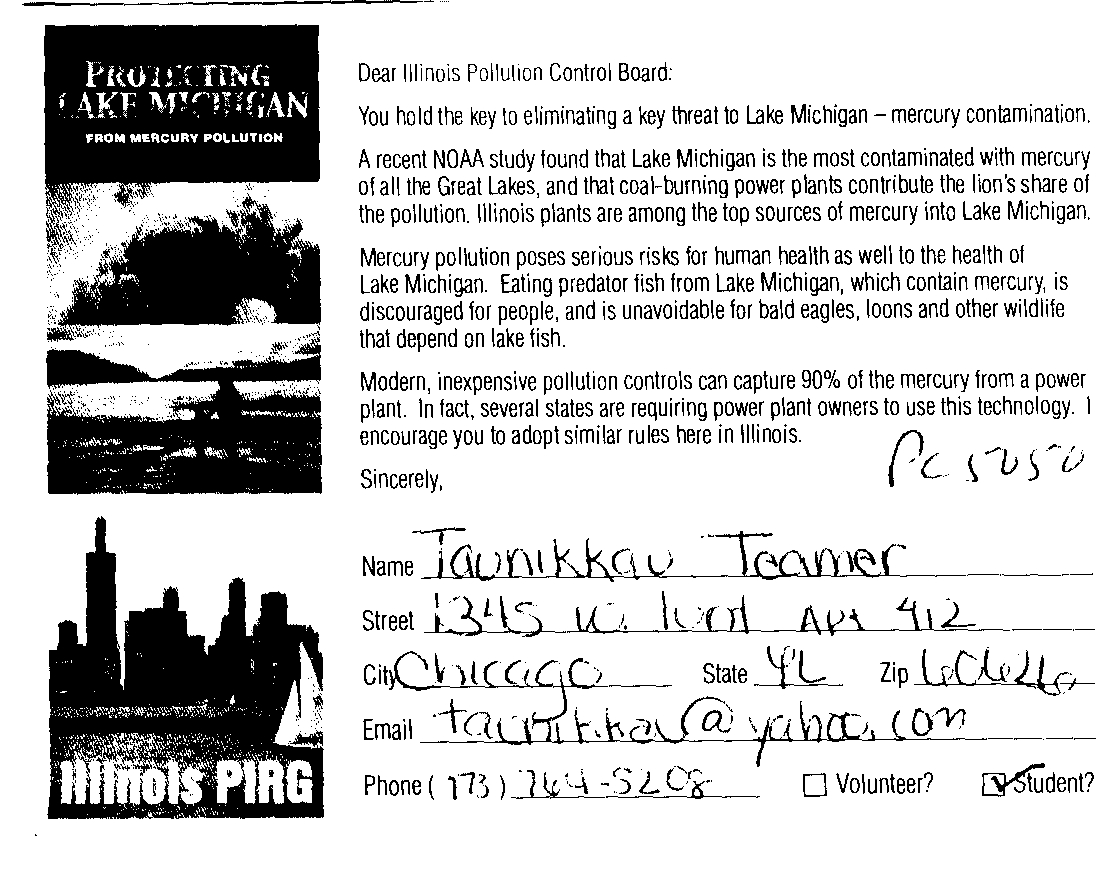 PROTECTING
LAKE MICHIGAN
FROM MERCURY POLLUTION
Dear Illinois Pollution Control Board:
You hold the key to eliminating a key threat to Lake Michigan – mercury contamination.
A recent NOAA study found that Lake Michigan is the most contaminated with mercury
of all the Great Lakes, and that coal-burning power plants contribute the lion's share of
the pollution. Illinois plants are among the top sources of mercury into Lake Michigan.
Mercury pollution poses serious risks for human health as well to the health of
Lake Michigan. Eating predator fish from Lake Michigan, which contain mercury, is
discouraged for people, and is unavoidable for bald eagles, loons and other wildlife
that depend on lake fish.
Modern, inexpensive pollution controls can capture 90% of the mercury from a power
plant. In fact, several states are requiring power plant owners to use this technology. I
encourage you to adopt similar rules here in Illinois.
Sincerely,
Name Taunikkau Teamer
Street 1345 W. Apt 412
City Chicago State IL Zip
Email @yahoo.com
Phone (773) 764-5208 Volunteer? Student?
Illinois PIRG